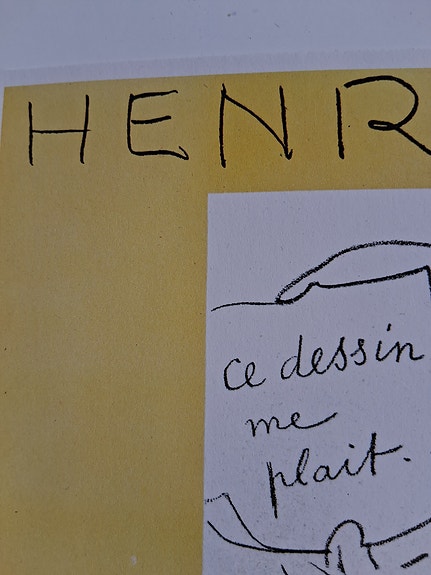 HENR
ce dessin
me
plait.